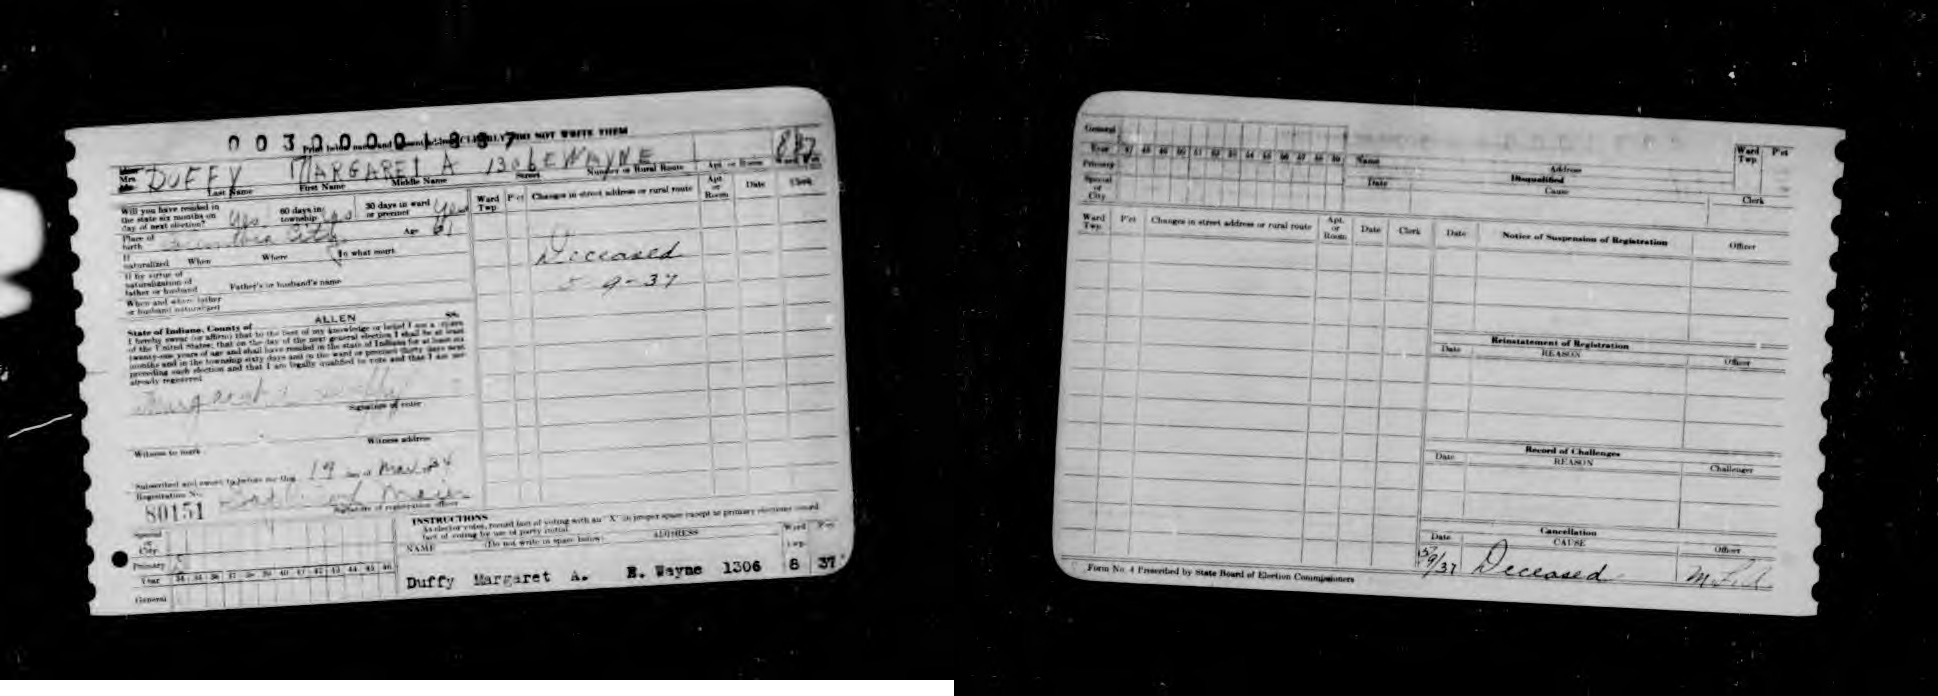 PLEASE DO NOT WRITE THEM
Mrs. DUFFY MARGARET A 1306 E WAYNE 8 37
Last Name First Name Middle Name Street Number or Rural Route Apt. or Room Ward Pct
Will you have resided in
the state six months on
day of next election? Yes
60 days in
township Yes
30 days in ward
or precinct Yes
Place of
birth City Age 61
If
naturalized When Where In what court
If by virtue of
naturalization of
father or husband Father's or husband's name
When and where father
or husband naturalized
State of Indiana, County of ALLEN SS:
I hereby swear (or affirm) that to the best of my knowledge or belief I am a citizen
of the United States; that on the day of the next general election I shall be at least
twenty-one years of age and shall have resided in the state of Indiana for at least six
months and in the township sixty days and in the ward or precinct thirty days next
preceding such election and that I am legally qualified to vote and that I am not
already registered
Margaret A Duffy
Signature of voter
Witness to mark Witness address
Subscribed and sworn to before me this 19 day of Mar 34
Registration No.
80151
Signature of registration officer
Ward
Twp. Pct Changes in street address or rural route Apt.
or
Room Date Clerk
Deceased
9-37
Special
or
City
Primary
Year 34 35 36 37 38 39 40 41 42 43 44 45 46
General
INSTRUCTIONS
As elector votes, record fact of voting with an "X" in proper space except in primary elections record
fact of voting by use of party initial.
NAME (Do not write in space below) ADDRESS Ward
Twp. Pct
Duffy Margaret A. E. Wayne 1306 8 37
General
Year 47 48 49 50 51 52 53 54 55 56 57 58 59
Primary
Special
or
City
Name Address Ward
Twp. Pct
Disqualified
Date Cause Clerk
Ward
Twp. Pct Changes in street address or rural route Apt.
or
Room Date Clerk
Date Notice of Suspension of Registration Officer
Reinstatement of Registration
Date REASON Officer
Record of Challenges
Date REASON Challenger
Cancellation
Date CAUSE Officer
5/9/37 Deceased
Form No. 4 Prescribed by State Board of Election Commissioners